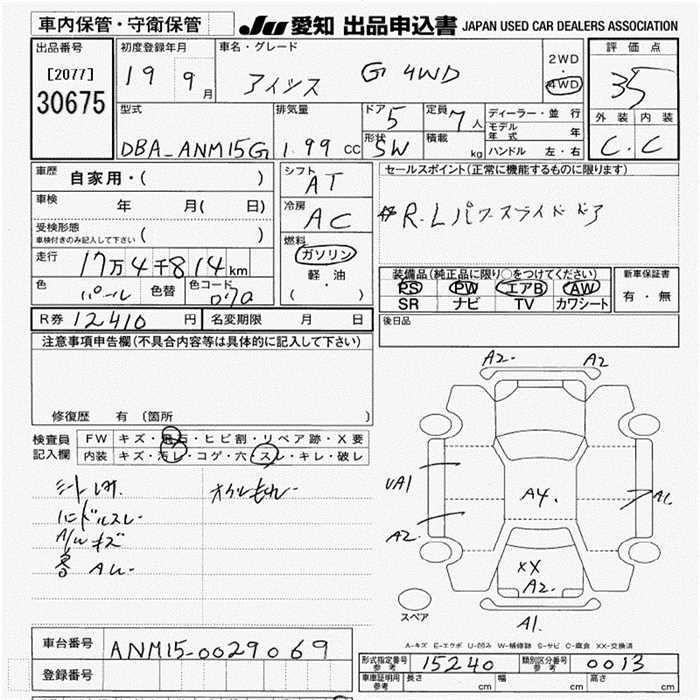 車内保管・守衛保管
JU 愛知 出品申込書 JAPAN USED CAR DEALERS ASSOCIATION
出品番号
[2077]
30675
初度登録年月
19 9月
車名・グレード
アイシス G 4WD
2WD
・
4WD
評価点
35
外装 内装
C . C
型式
DBA_ANM15G
排気量
1.99 CC
ドア 5
形状 SW
定員 7人
積載 kg
ディーラー・並行
モデル年式 年
ハンドル 左・右
車歴
自家用・( )
車検
年 月( 日)
受検形態
車検付きのみ記入して下さい ( )
走行
17万4千814km
色 パール 色替 色コード 070
シフト
AT
冷房
AC
燃料
ガソリン
軽・油
( ・ )
セールスポイント(正常に機能するものに限ります)
R.Lパワースライドドア
装備品(純正品に限り○をつけてください)
PS PW エアB AW
SR ナビ TV カワシート
新車保証書
有・無
R券 12410 円 名変期限 月 日
後日品
注意事項申告欄(不具合内容等は具体的に記入して下さい)
修復歴 有 (箇所 )
検査員
記入欄
FW キズ・飛石・ヒビ割・リペア跡・X要
内装 キズ・汚レ・コゲ・穴・スレ・キレ・破レ
シート
ハンドルスレ
A/Wキズ
A2. A2
UA1
A2.
A4.
XX
A2.
A1.
スペア
A-キズ E-エクボ U-凹み W-補修跡 S-サビ C-腐食 XX-交換済
車台番号 ANM15-0029069
登録番号
形式指定番号
参考 15240
類別区分番号
参考 0013
車庫証明用
参考
長さ cm 幅 cm 高さ cm